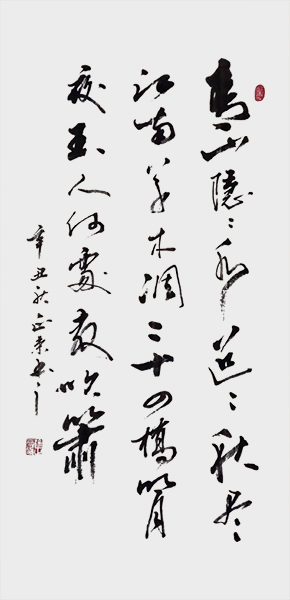 青山隱〻水迢〻秋尽
江南草木凋二十四橋明月
夜玉人何處教吹簫
辛丑秋